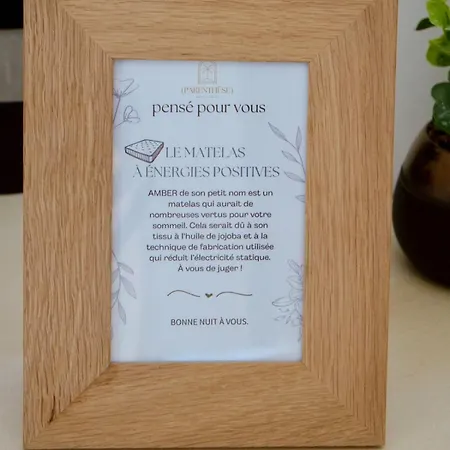 (PARENTHÈSE)
pensé pour vous
LE MATELAS
À ÉNERGIES POSITIVES
AMBER de son petit nom est un
matelas qui aurait de
nombreuses vertus pour votre
sommeil. Cela serait dû à son
tissu à l'huile de jojoba et à la
technique de fabrication utilisée
qui réduit l'électricité statique.
À vous de juger !
BONNE NUIT À VOUS.